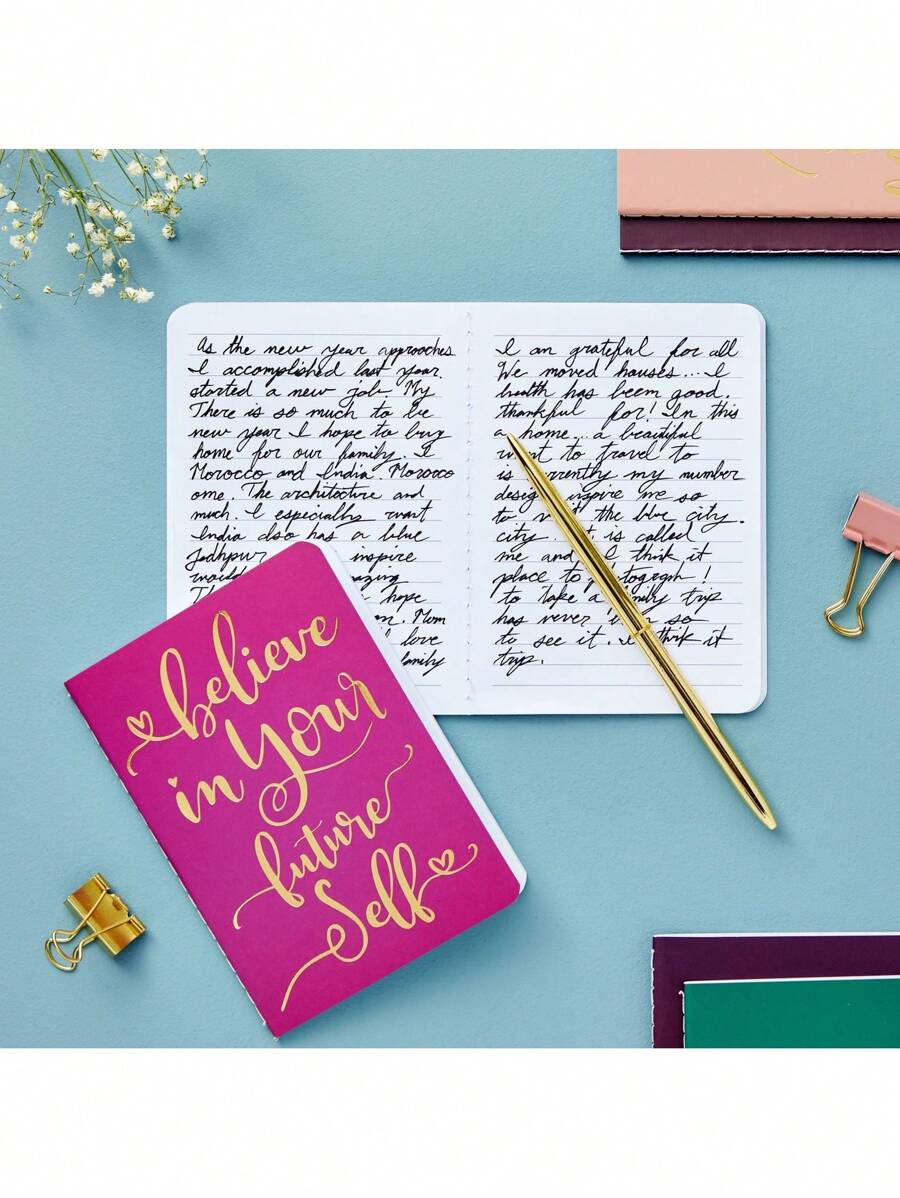 As the new year approaches
I accomplished last year.
started a new job. My
There is so much to be
new year I hope to buy
home for our family. I
Morocco and India. Morocco
ome. The architecture and
much. I especially want
India also has a blue
Jodhpur inspire
would amazing
hope
on. Mom
love
family
I am grateful for all
We moved houses... I
health has been good.
thankful for! In this
a home... a beautiful
want to travel to
is currently my number
design inspire me so
to visit the blue city.
city. It is called
me and I think it
place to
to take a family trip
has never been so
to see it. I think it
trip.
believe
in your
future
Self